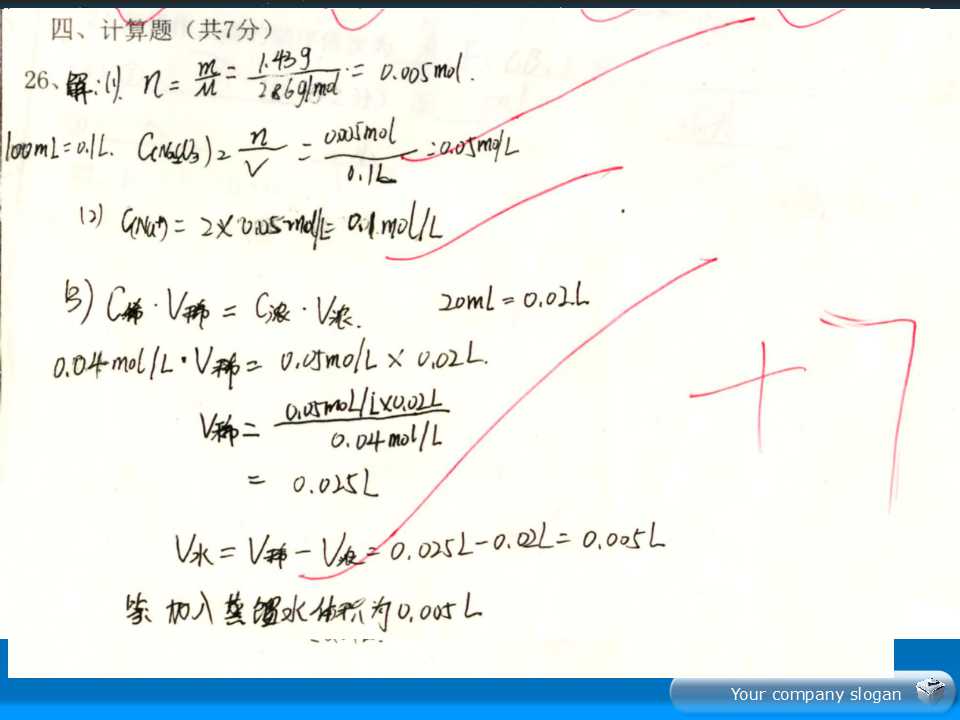 四、计算题（共7分）
26、解:(1). n = m/M = 1.43g/286g/mol = 0.005mol.
100mL=0.1L. C(Na₂CO₃) = n/V = 0.005mol/0.1L =0.05mol/L
(2) C(Na⁺) = 2×0.05mol/L= 0.1mol/L
(3) C稀·V稀 = C浓·V浓. 20mL = 0.02L
0.04mol/L·V稀= 0.05mol/L × 0.02L.
V稀= 0.05mol/L×0.02L/0.04mol/L
= 0.025L
V水 = V稀 - V浓 = 0.025L-0.02L= 0.005L
答: 加入蒸馏水体积为0.005L
+7
Your company slogan